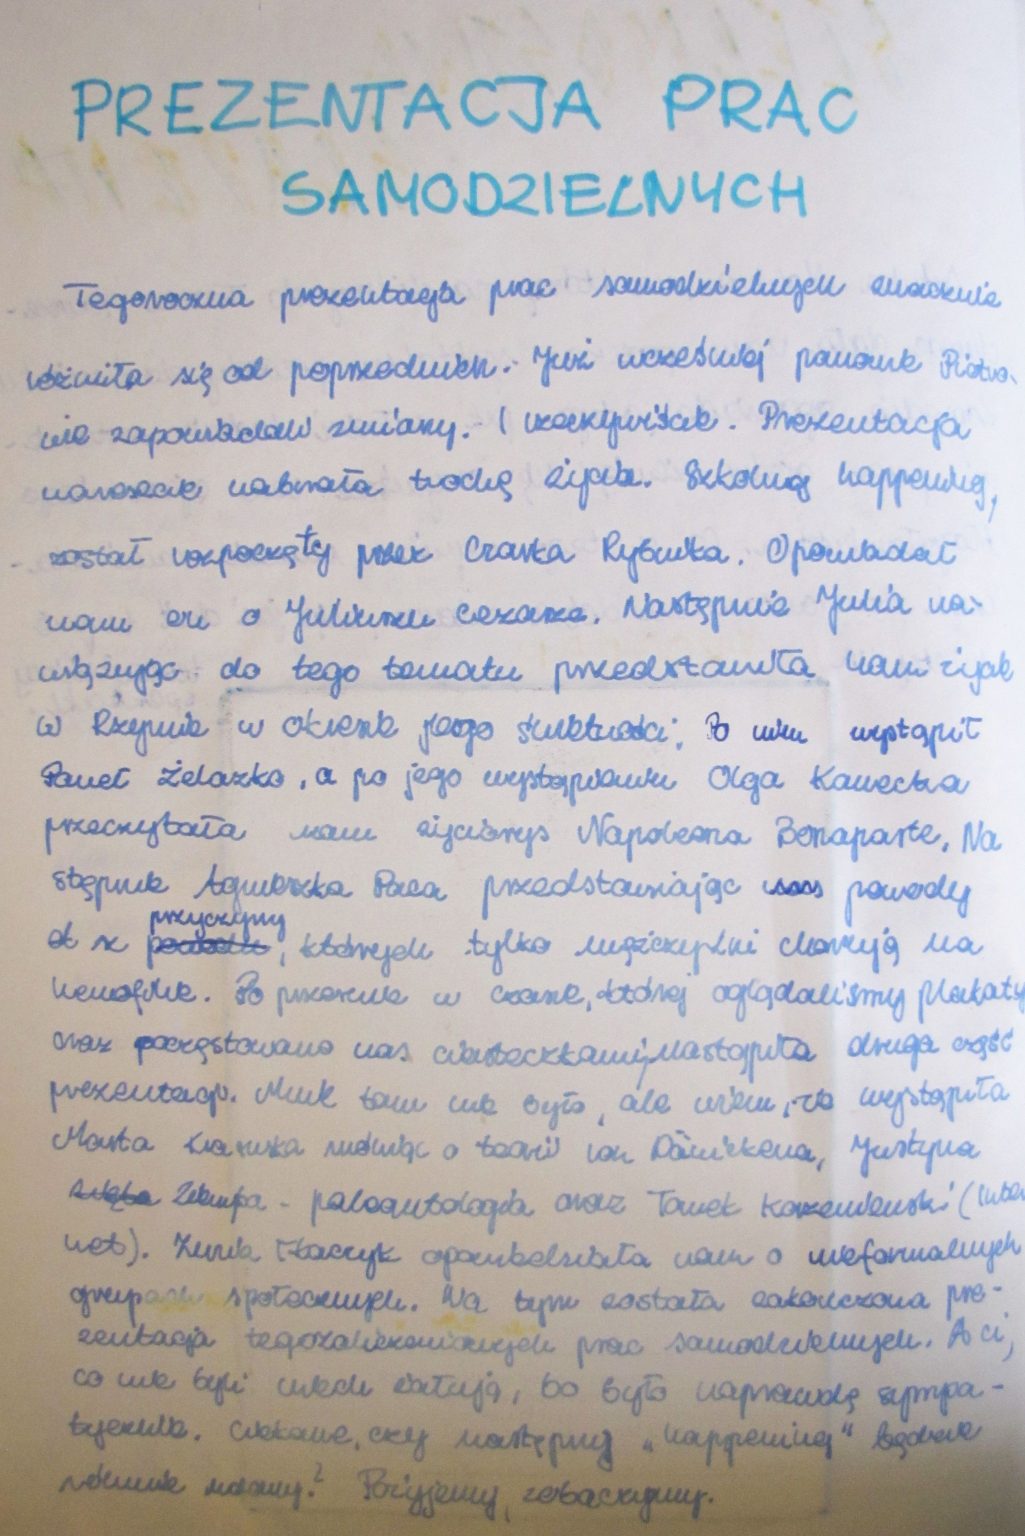 PREZENTACJA PRAC
SAMODZIELNYCH
Tegoroczna prezentacja prac samodzielnych znacznie
różniła się od poprzednich. Już wcześniej panowie Piotro-
wie zapowiadali zmiany. I rzeczywiście. Prezentacja
nareszcie nabrała trochę życia. Szkolny happening,
został rozpoczęty przez Czarka Rybnika. Opowiadał
nam on o Juliuszu Cezarze. Następnie Julia na-
wiązując do tego tematu przedstawiła nam życie
w Rzymie w okresie jego świetności. Po nim wystąpił
Paweł Żelazko, a po jego wystąpieniu Olga Kawecka
przeczytała nam życiorys Napoleona Bonaparte. Na
stępnie Agnieszka Paca przedstawiając nas powody
przyczyny
, których tylko mężczyźni chorują na
hemofilie. Po przerwie w czasie, której oglądaliśmy plakaty
oraz poczęstowano nas ciasteczkami, nastąpiła druga część
prezentacji. Mnie tam nie było, ale wiem, że wystąpiła
Marta mówiąc o teorii von Dänikena, Justyna
- paleontologia oraz Tomek (Inter
net). Zuzia Tkaczyk opowiedziała nam o nieformalnych
grupach społecznych. Na tym została zakończona pre-
zentacja prac samodzielnych. A ci,
co nie byli niech żałują, bo było naprawdę sympa-
tycznie. Ciekawe, czy następny „happening" będzie
równie udany? Pożyjemy, zobaczymy.